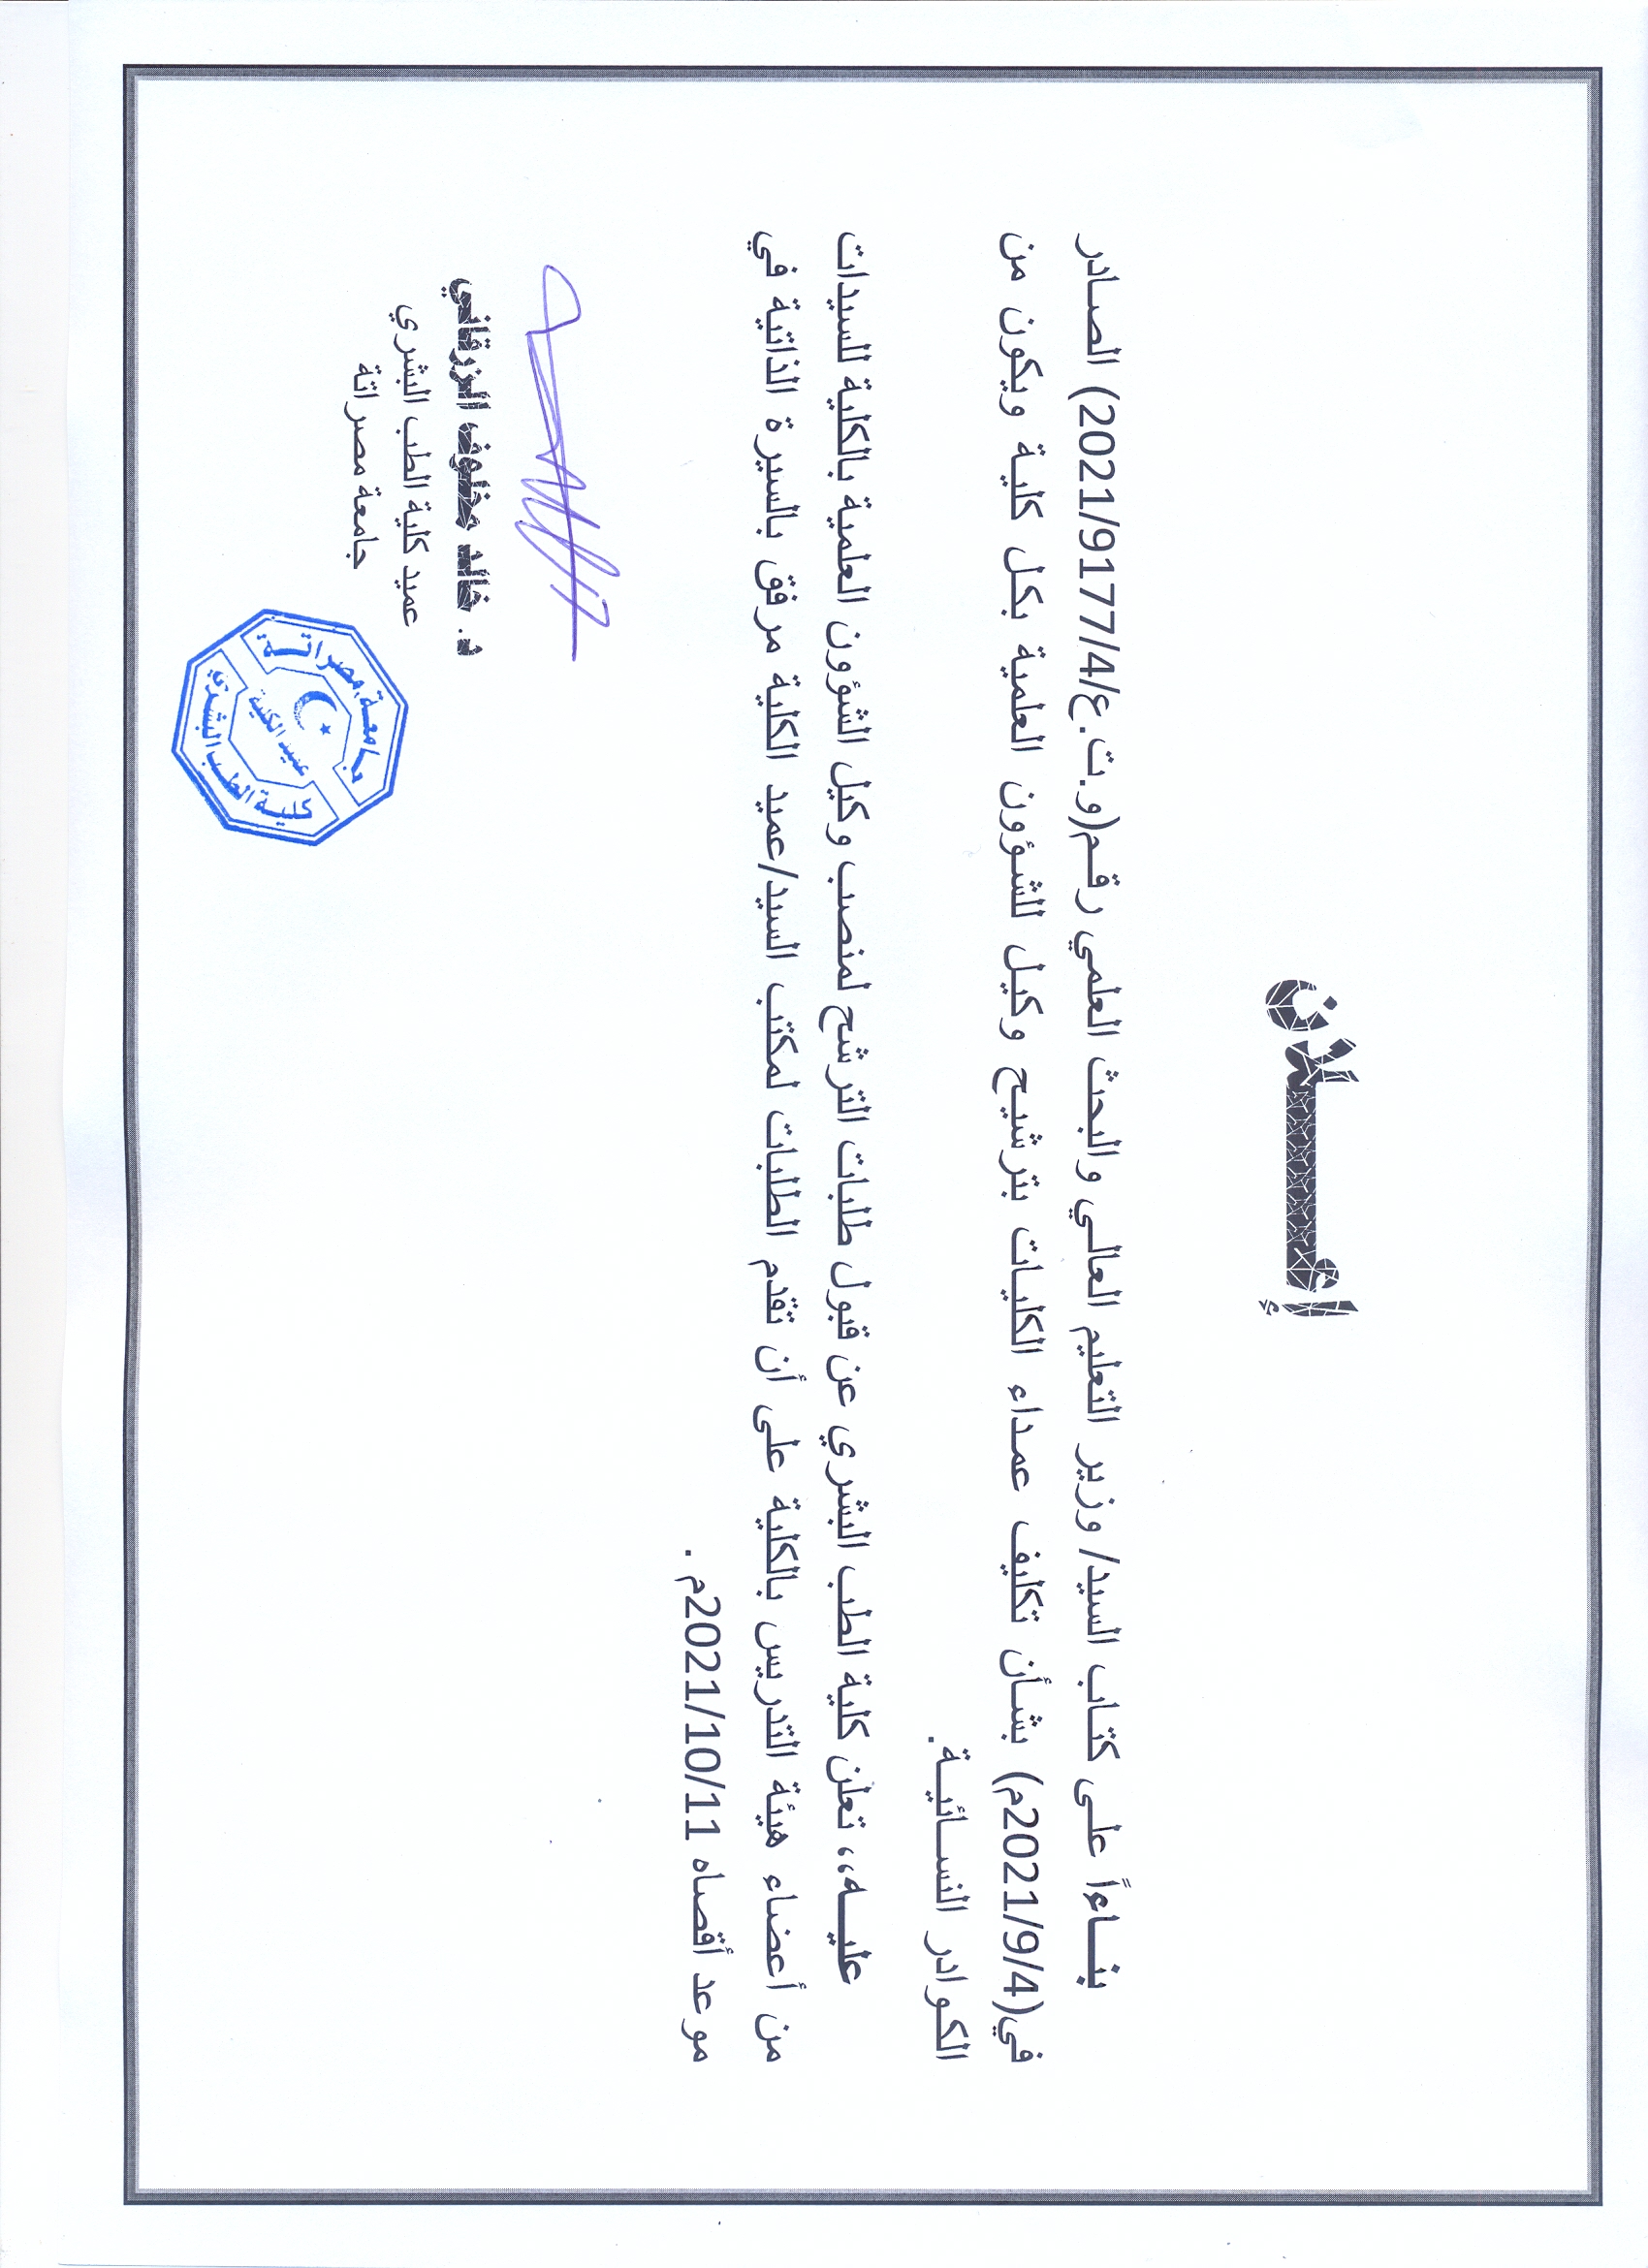 إعـــــلان
بنـــاءاً علـى كتـاب السيد/ وزير التعليم العالـي والبحث العلمي رقـم(و.ت.ع/2021/9177/4) الصـادر
في(2021/9/4م) بشـأن تكليف عمـداء الكليـات بترشيـح وكيـل للشـؤون العلمية بكـل كليـة ويكون من
الكـوادر النسـائيـة.
عليـــه،،، تعلن كلية الطب البشري عن قبول طلبات الترشح لمنصب وكيل الشؤون العلمية بالكلية للسيدات
من أعضاء هيئة التدريس بالكلية على أن تقدم الطلبات لمكتب السيد/عميد الكلية مرفق بالسيرة الذاتية في
موعد أقصاه 2021/10/11م .
د. خالد مخلوف الزرقاني
عميد كلية الطب البشري
جامعة مصراتة
جـامعـة مصراتـــة
عميد الكلية
كليـة الطـب البشـري